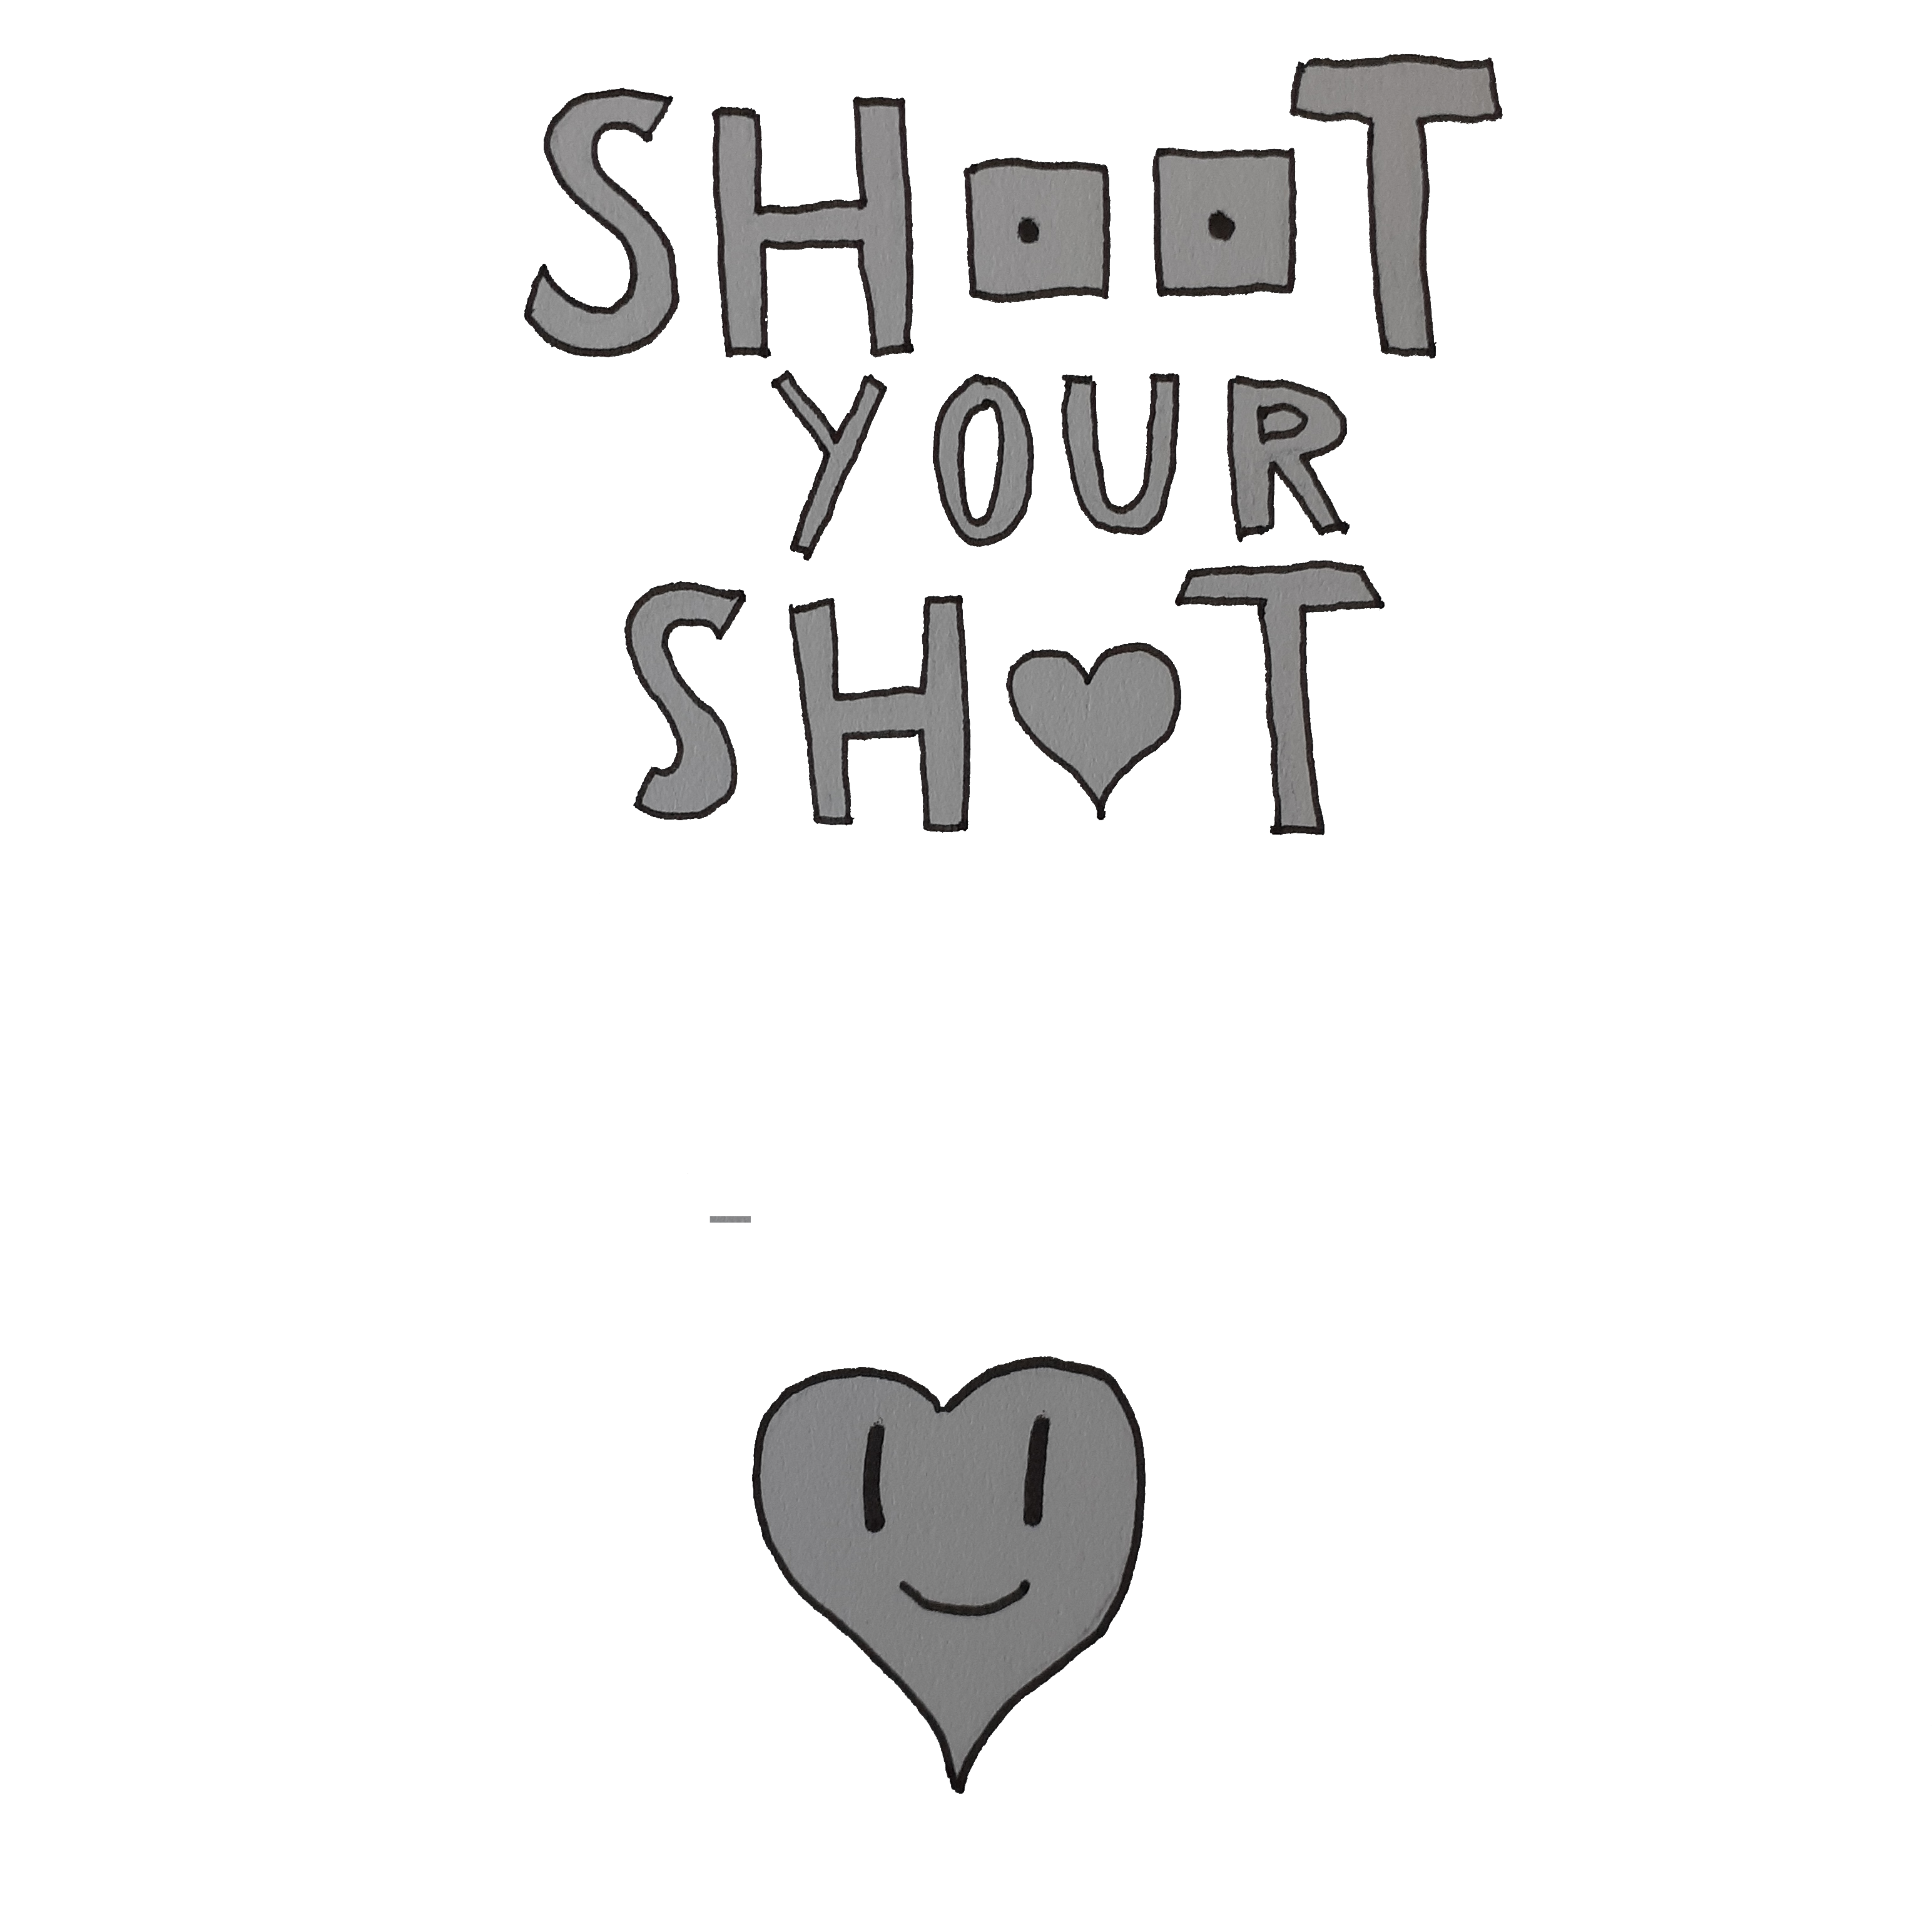 SHOOT
YOUR
SHOT